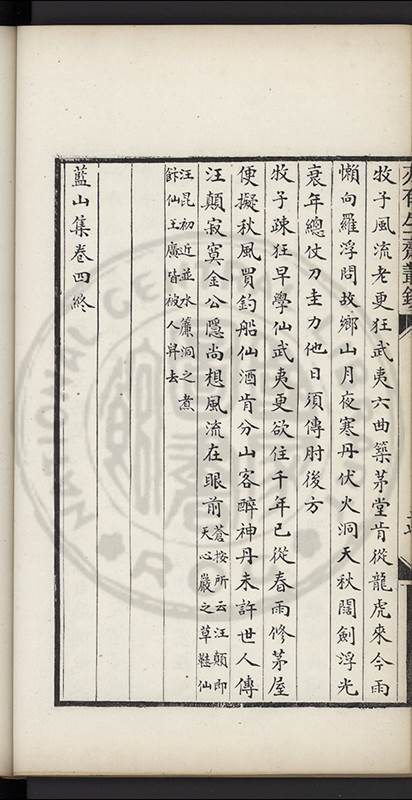 牧子風流老更狂武夷六曲築茅堂肯從龍虎來今雨
懶向羅浮問故鄉山月夜寒丹伏火洞天秋闊劍浮光
衰年總仗刀圭力他日須傳肘後方
牧子疎狂早學仙武夷更欲住千年已從春雨修茅屋
便擬秋風買釣船仙酒肯分山客醉神丹未許世人傳
汪顛寂寞金公隱尚想風流在眼前蒼按所云汪顛即
天心巖之草鞋仙
汪昆初近並水簾洞之煮
餅仙王
皆被人舁去
藍山集卷四終